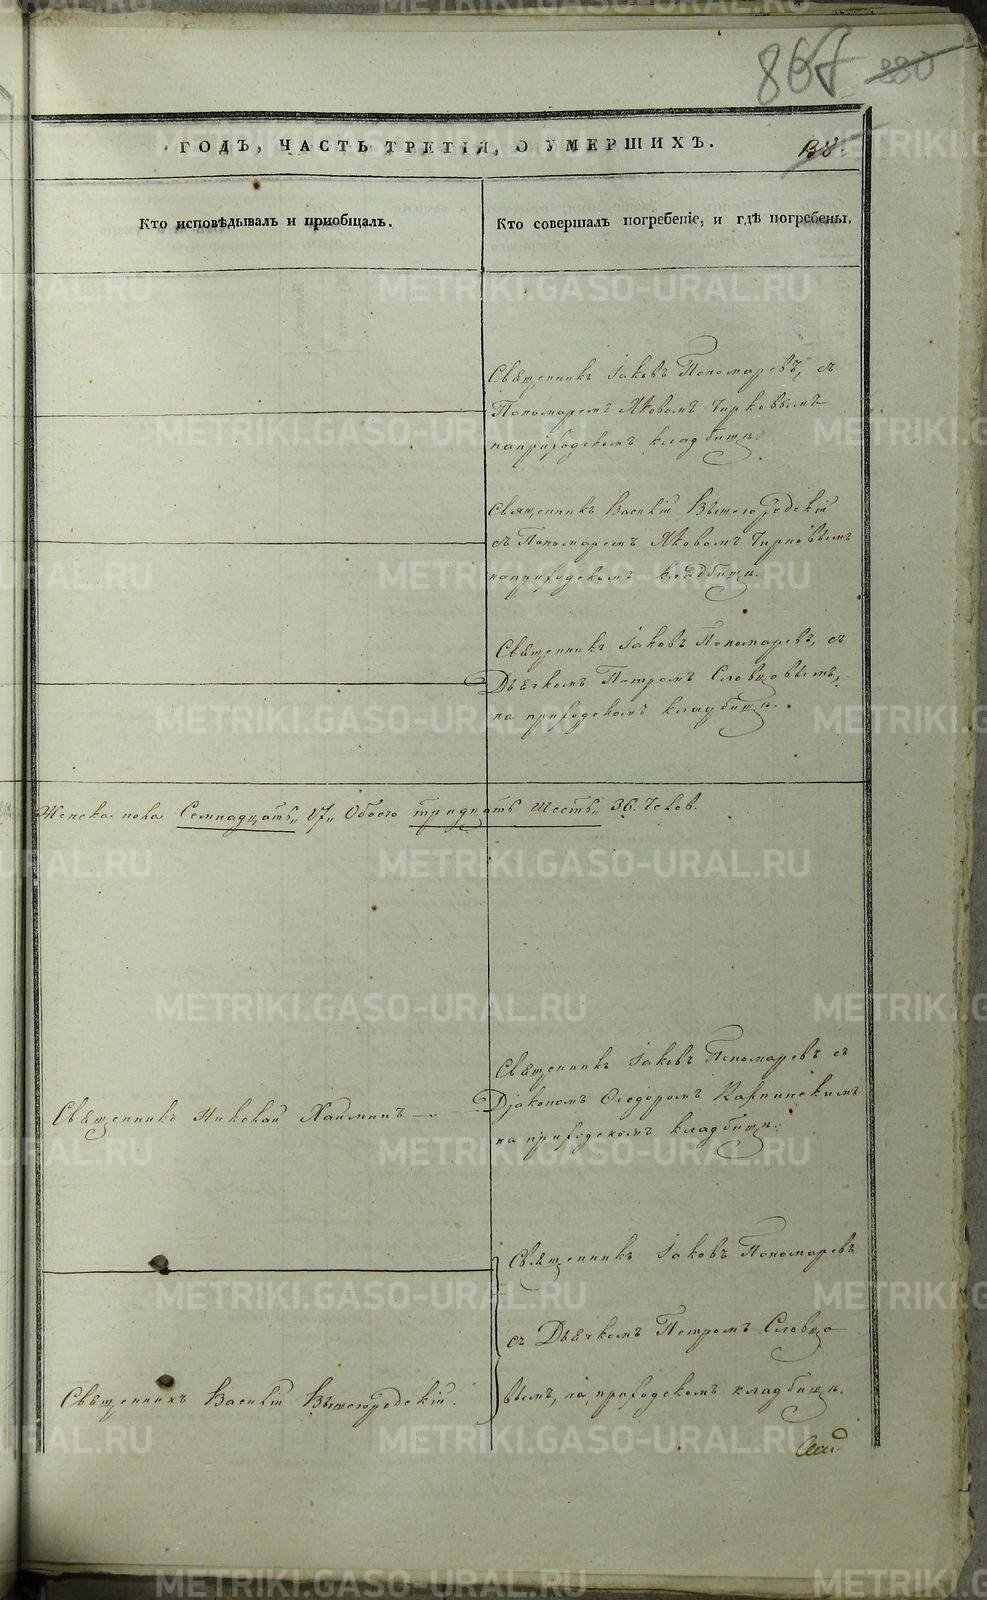 867 880
ГОДЪ, ЧАСТЬ ТРЕТІЯ, О УМЕРШИХЪ.
138.
Кто исповѣдывалъ и приобщалъ.
Кто совершалъ погребеніе, и гдѣ погребены.
Священникъ Іаковъ Пономаревъ, съ
Пономаремъ Яковомъ Чирковымъ
на приходскомъ кладбищѣ.
Священникъ Василій Вышегородскій
съ Пономаремъ Яковомъ Чирковымъ
на приходскомъ кладбищѣ.
Священникъ Іаковъ Пономаревъ, съ
Дьячкомъ Петромъ Словцовымъ,
на приходскомъ кладбищѣ.
Женска пола Семнадцать 17, Обоего тридцать шесть 36. Челов.
Священникъ Николай Хлынинъ
Священникъ Іаковъ Пономаревъ съ
Діакономъ Ѳеодоромъ Карпинскимъ
на приходскомъ кладбищѣ.
Священникъ Іаковъ Пономаревъ
съ Дьячкомъ Петромъ Словцо
вымъ, на приходскомъ кладбищѣ.
Священникъ Василій Вышегородскій.
METRIKI.GASO-URAL.RU